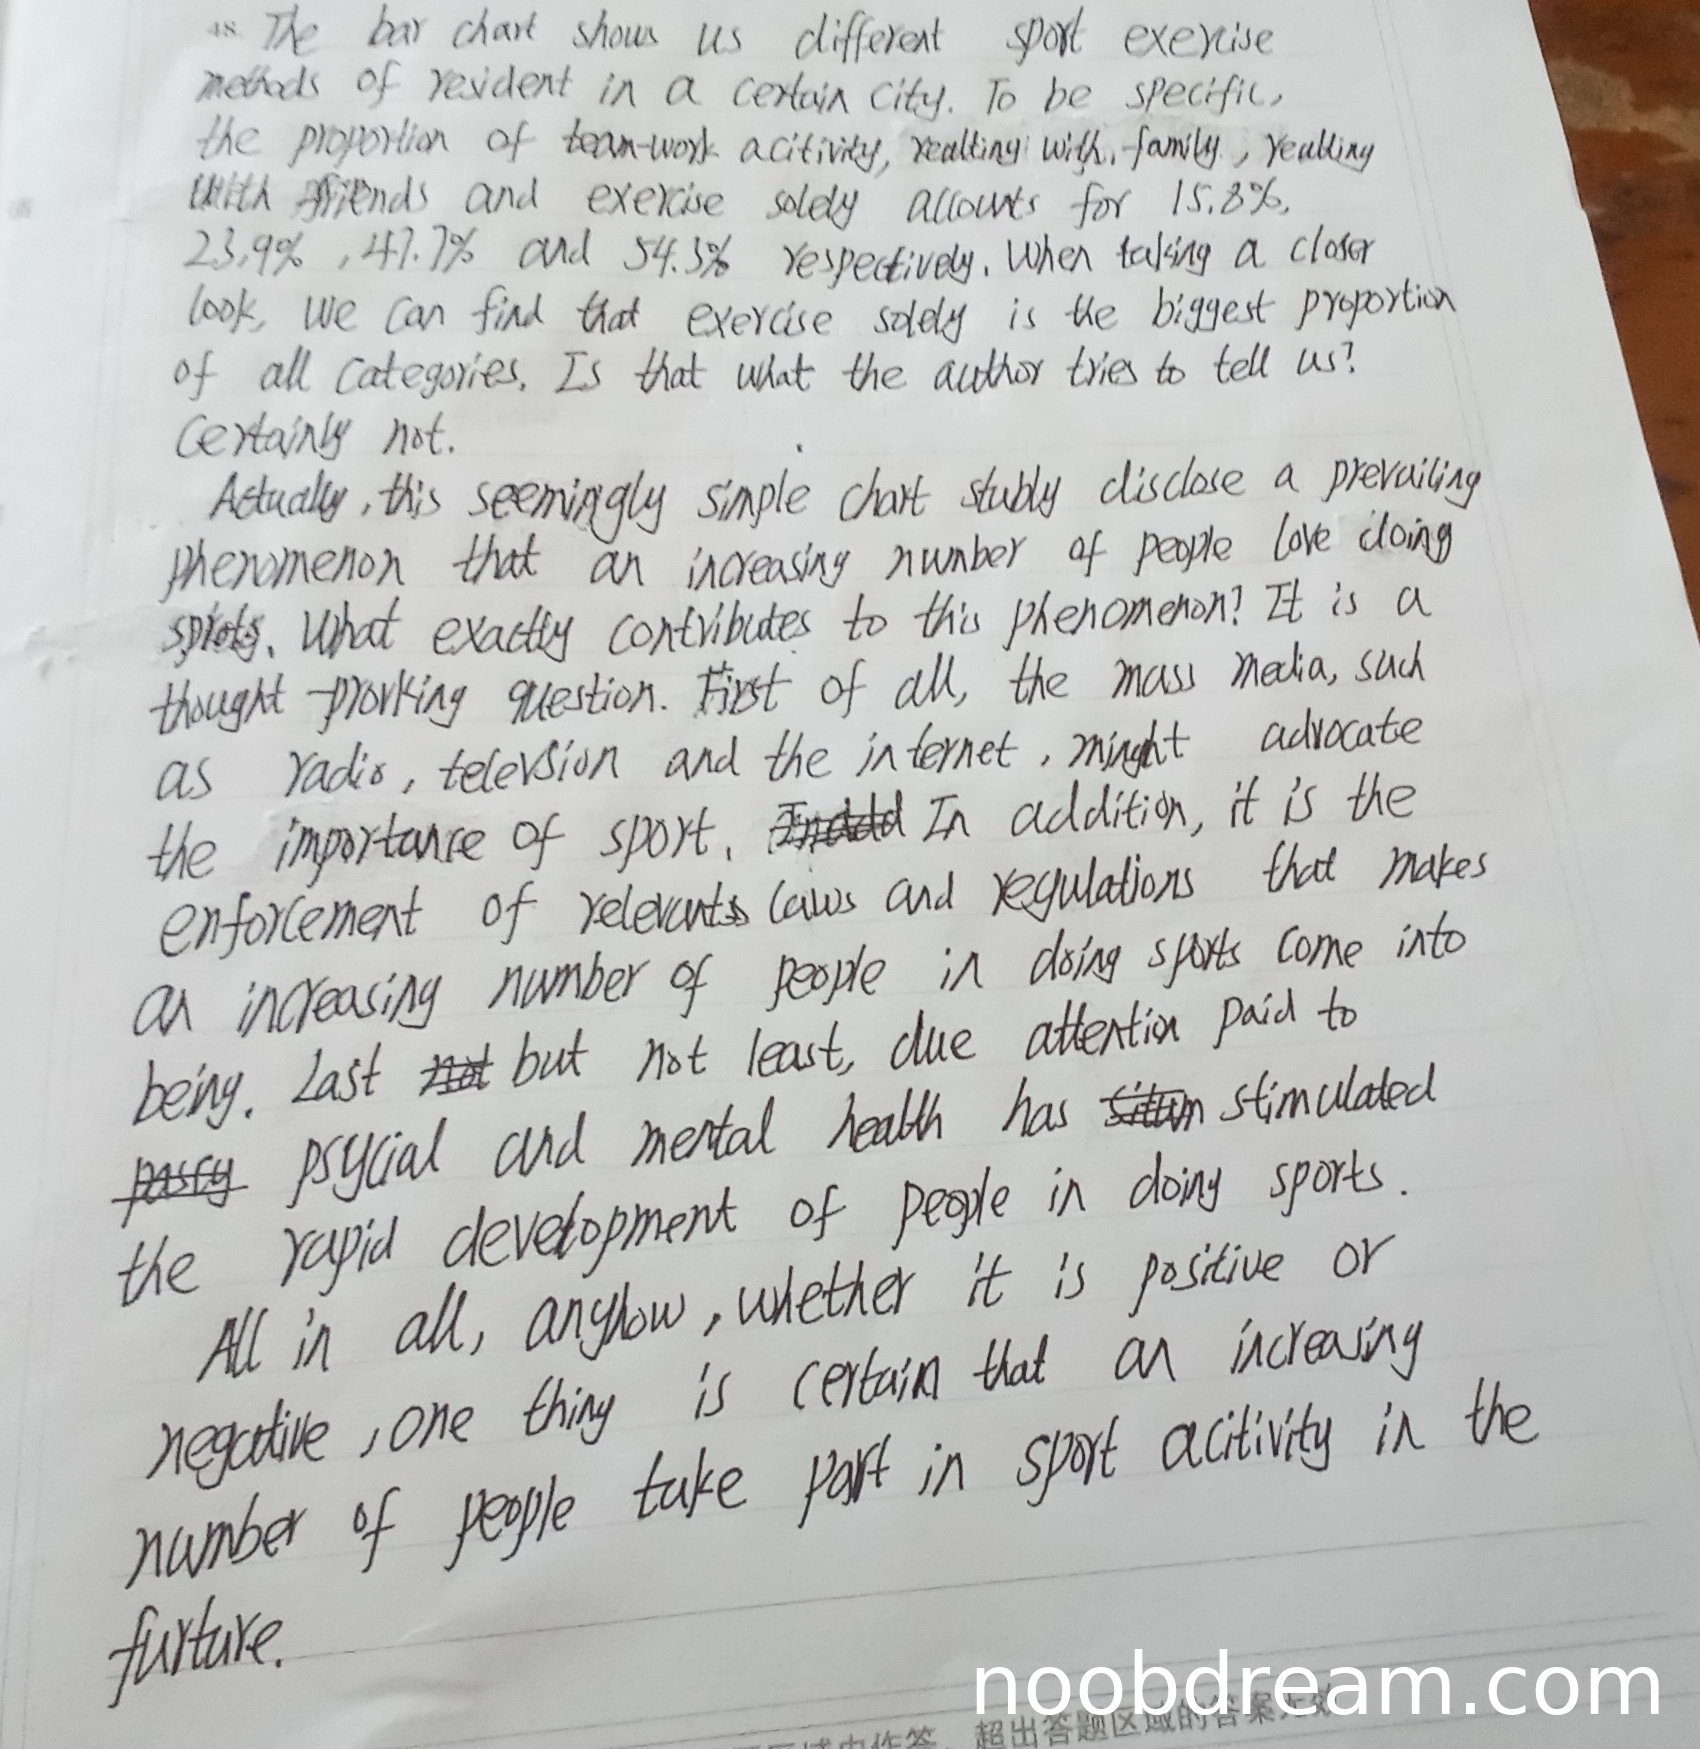 48. The bar chart shows us different sport exercise
methods of resident in a certain city. To be specific,
the proportion of team-work acitivity, realting with family, realting
with friends and exercise solely accounts for 15.8%,
23.9%, 47.7% and 54.3% respectively. When taking a closer
look, we can find that exercise solely is the biggest proportion
of all categories. Is that what the author tries to tell us?
Certainly not.
Actually, this seemingly simple chart stubly disclose a prevailing
phenomenon that an increasing number of people love doing
sprots. What exactly contributes to this phenomenon? It is a
thought-provking question. First of all, the mass media, such
as radio, televsion and the internet, minght advocate
the importance of sport. In addition, it is the
enforcement of relevants laws and regulations that makes
an increasing number of people in doing sports come into
being. Last but not least, due attention paid to
psycial and mental health has stimulated
the rapid development of people in doing sports.
All in all, anyhow, whether it is positive or
negative, one thing is certain that an increasing
number of people take part in sport acitivity in the
furture.
noobdream.com
超出答题区域的答案无效